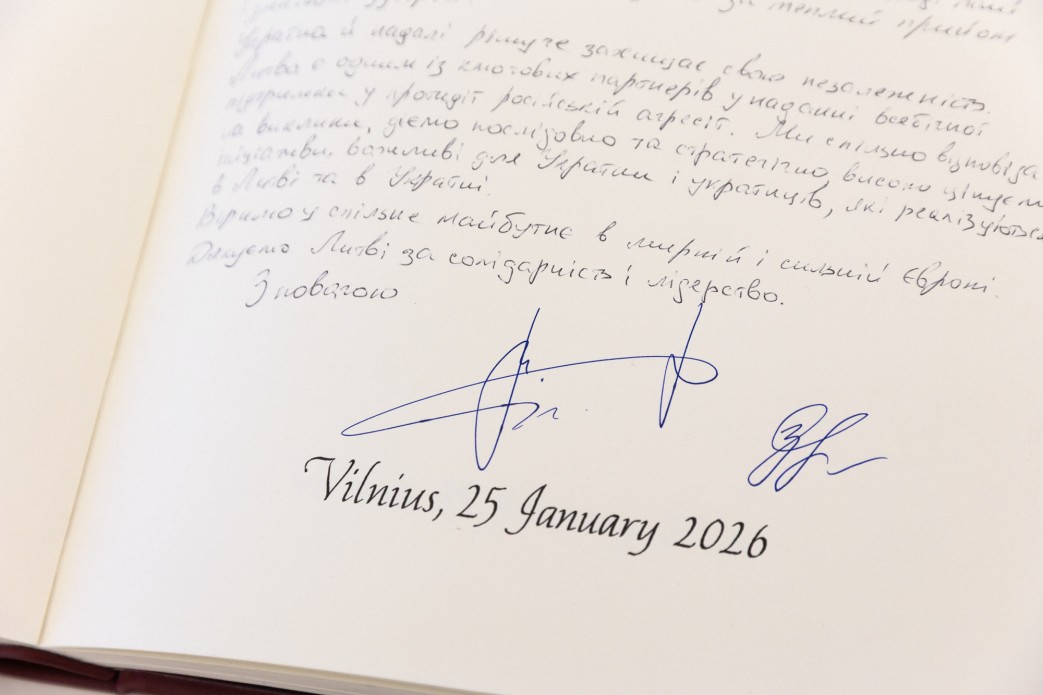 за теплий прийом
Україна й надалі рішуче захищає свою незалежність.
Литва є одним із ключових партнерів у наданні всебічної
підтримки у протидії російській агресії. Ми спільно відповіда
на виклики, діємо послідовно та стратегічно, високо цінуємо
ініціативи, важливі для України і українців, які реалізуються
в Литві та в Україні.
Віримо у спільне майбутнє в мирній і сильній Європі.
Дякуємо Литві за солідарність і лідерство.
З повагою
Vilnius, 25 January 2026